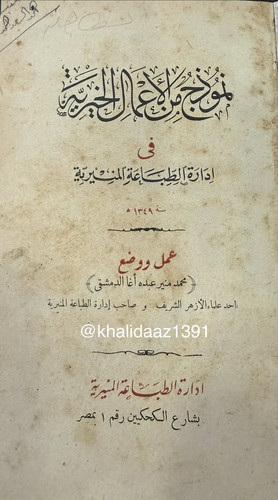 نموذج من الأعمال الخيرية
في
إدارة الطباعة المنيرية
سنة ١٣٤٩ ه
عمل ووضع
محمد منير عبده أغا الدمشقي
أحد علماء الأزهر الشريف و صاحب إدارة الطباعة المنيرية
@khalidaaz1391
إدارة الطباعة المنيرية
بشارع الكحكيين رقم ١ بمصر